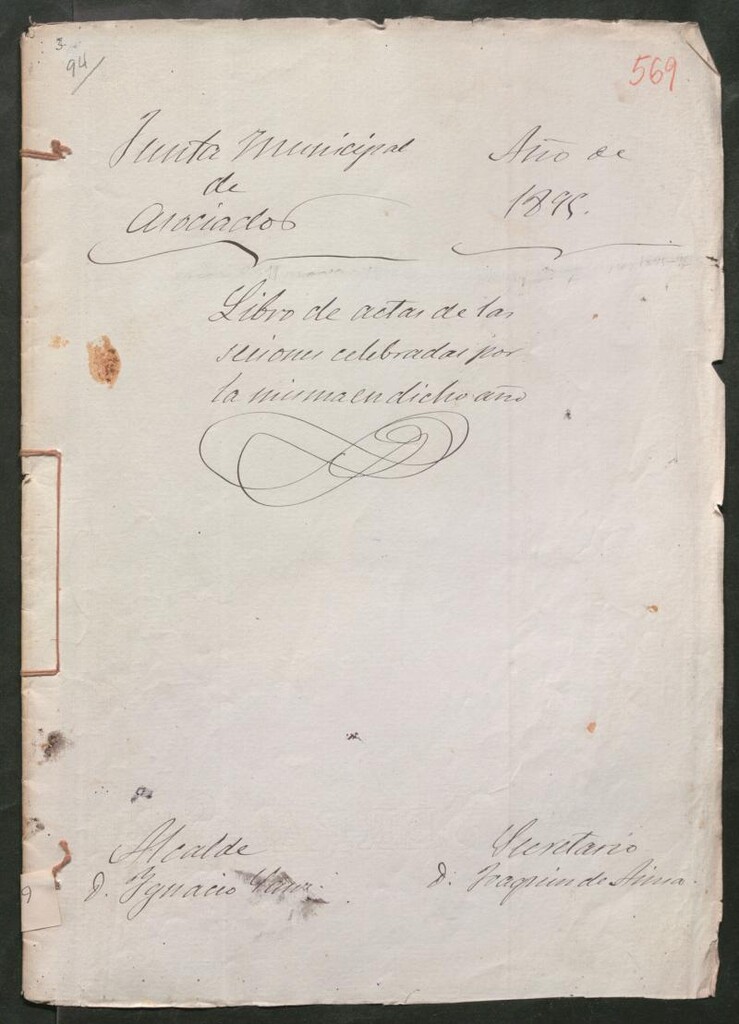 3
94/
569
Junta Municipal
de
Asociados
Año de
1895.
Libro de actas de las
sesiones celebradas por
la misma en dicho año
Alcalde
D. Ygnacio
Secretario
D. Joaquin de
9